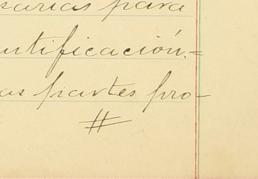 sarias para
ntificación.=
as partes pro-
#